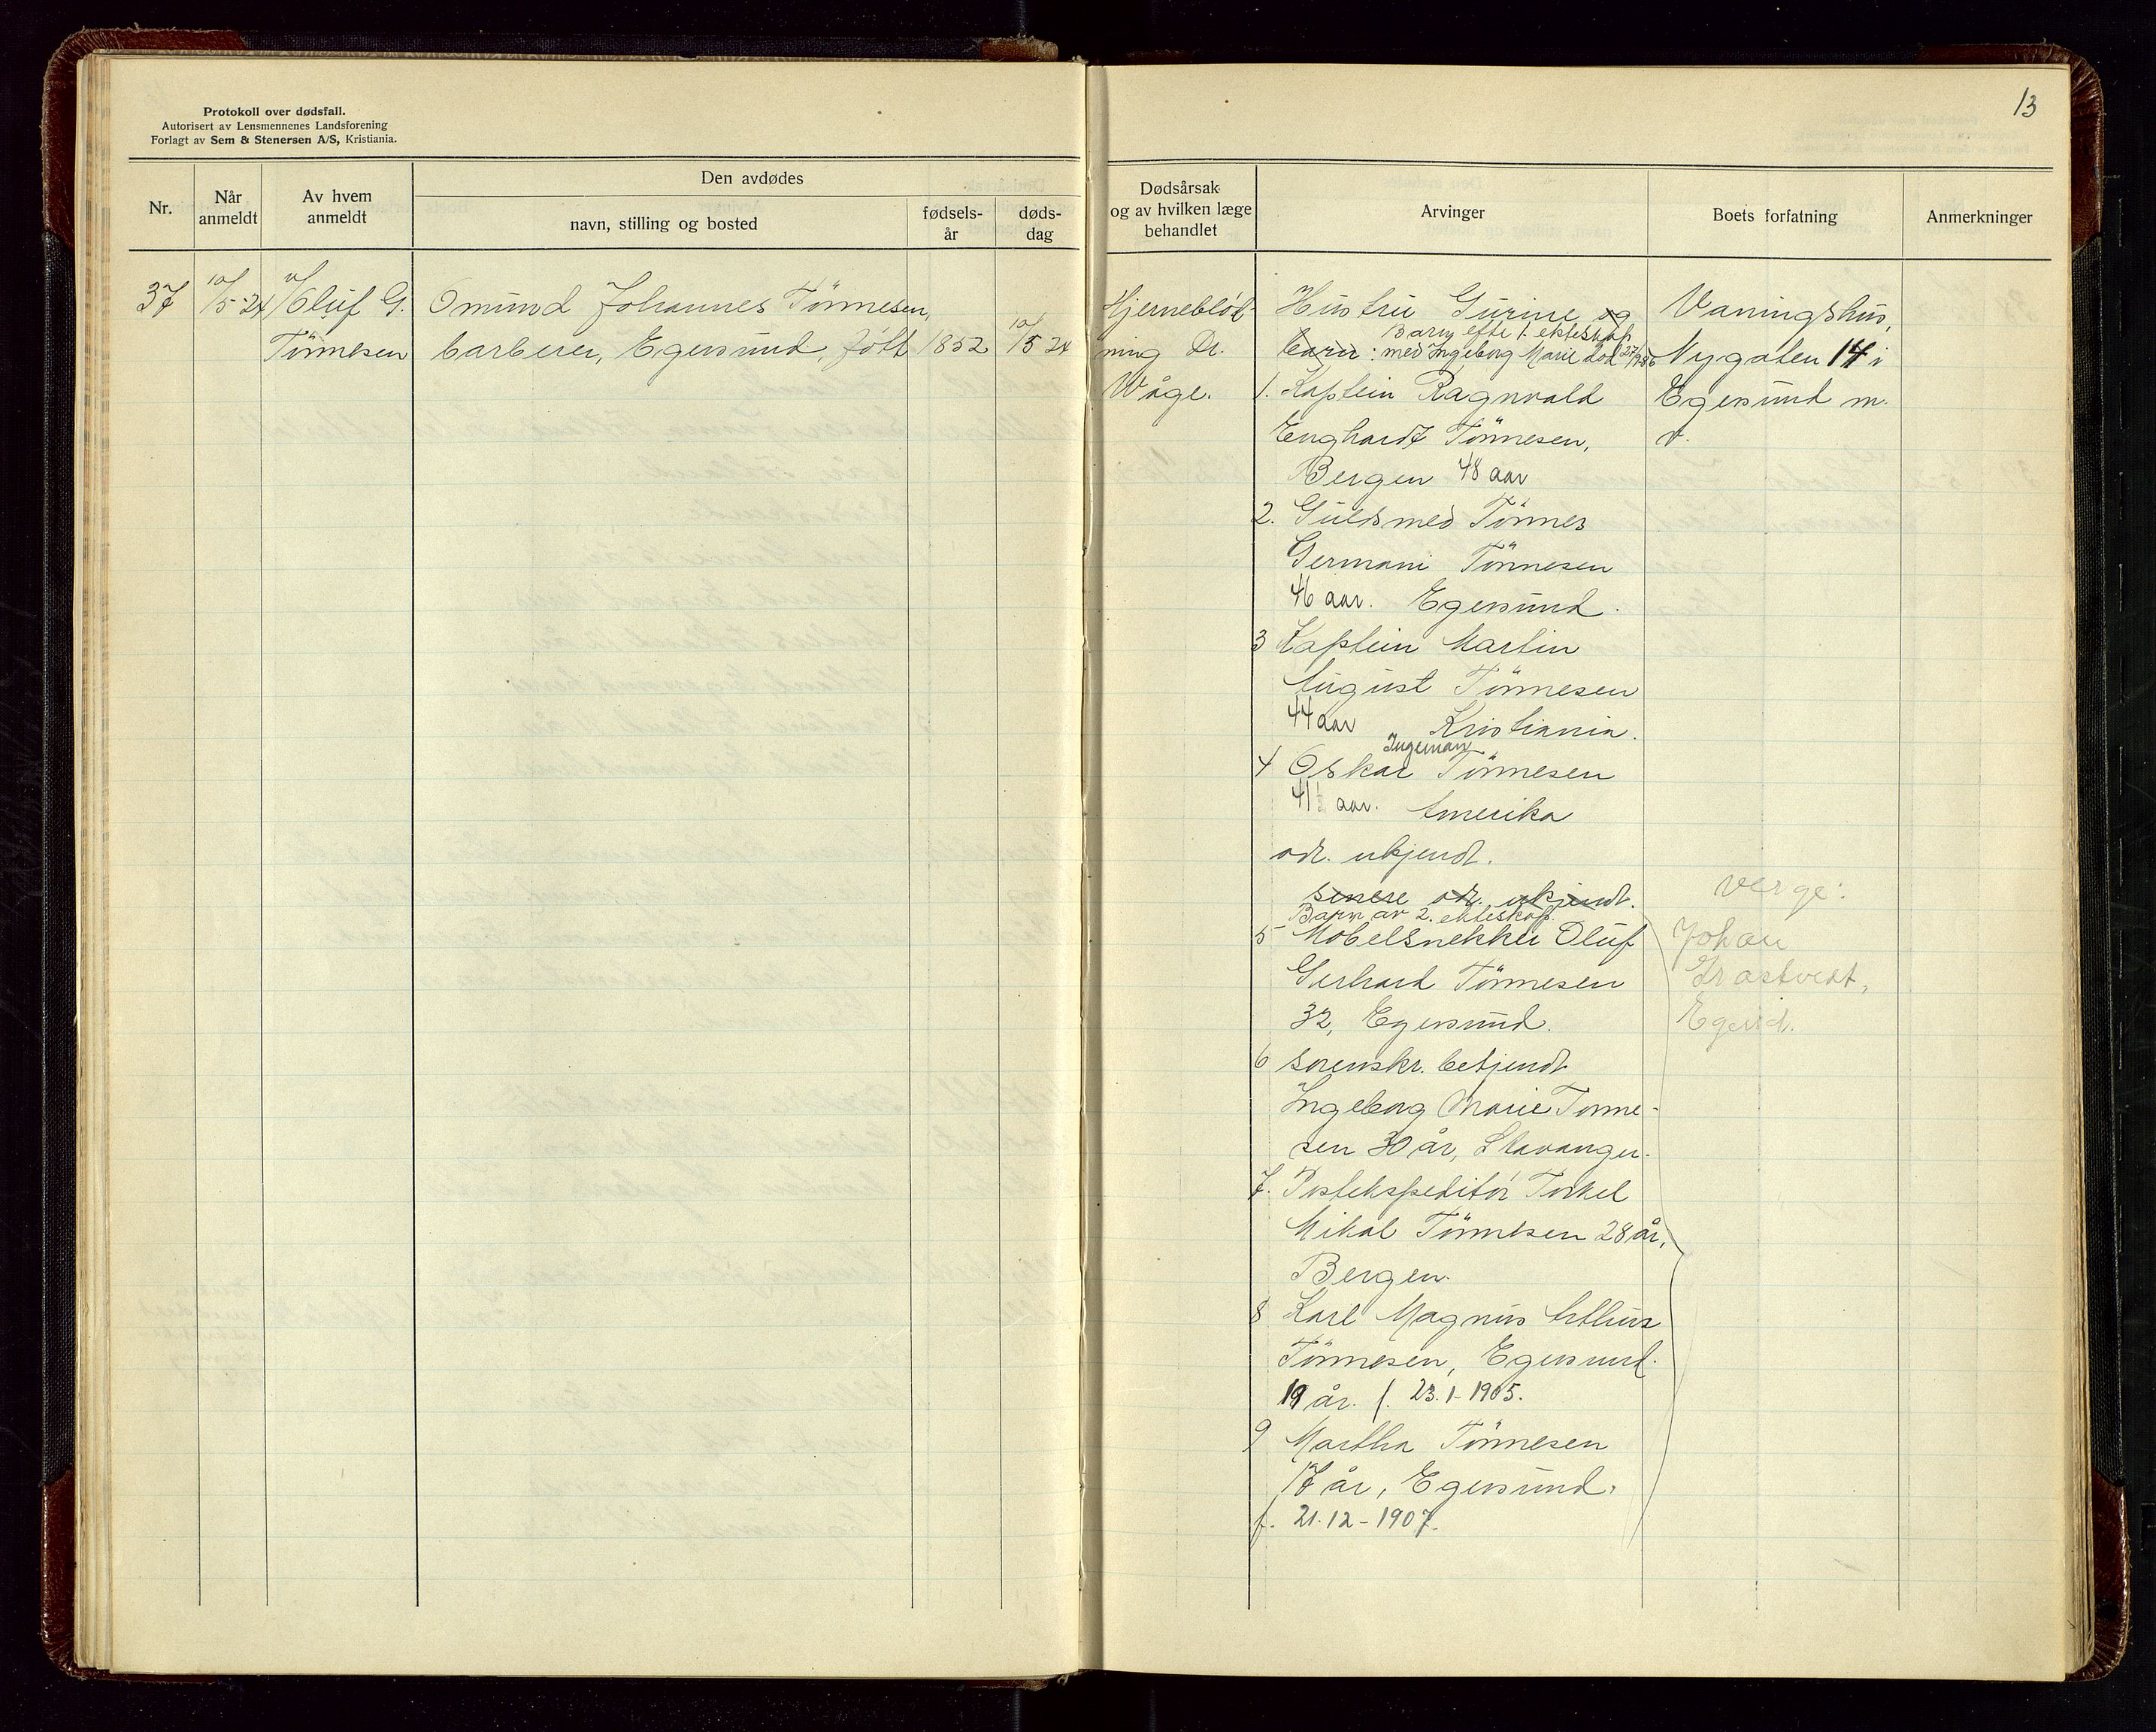 Protokoll over dødsfall.
Autorisert av Lensmennenes Landsforening
Forlagt av Sem & Stenersen A/S, Kristiania.
13
Nr.
Når
anmeldt
Av hvem
anmeldt
Den avdødes
navn, stilling og bosted
fødsels-
år
døds-
dag
Dødsårsak
og av hvilken læge
behandlet
Arvinger
Boets forfatning
Anmerkninger
37
10/5-24
v/Oluf G.
Tönnesen
Omund Johannes Tönnesen,
barberer, Egersund, født
1852
10/5 24
Hjerneblöd-
ning Dr.
Wåge.
Hustru Gurine og
Barn efte 1. ekteskap
barn: med Ingeborg Marie död 27/
1. Kaptein Ragnvald
Enghardt Tönnesen,
Bergen 48 aar
2. Guldsmed Tönnes
Germani Tönnesen
46 aar. Egersund.
3 Kaptein Martin
August Tönnesen
44 aar Kristiania.
Ingeman
4 Oskar Tönnesen
41 aar. Amerika
adr. ukjendt.
senere adr. ukjendt.
Barn av 2. ekteskap
5 Möbelsnekker Oluf
Gerhard Tönnesen
32, Egersund.
6 sorenskr. betjendt
Ingeborg Marie Tönne-
sen 30 år, Stavanger.
7. Postekspeditör Torkel
Mikal Tönnesen 28 år,
Bergen.
8 Karl Magnus Arthur
Tönnesen, Egersund.
19 år. f. 23.1-1905.
9 Martha Tönnesen
17 år, Egersund.
f. 21.12-1907.
Vaningshus,
Nygaten 14 i
Egersund m.
v.
verge:
Johan
Grastveit,
Egersd.